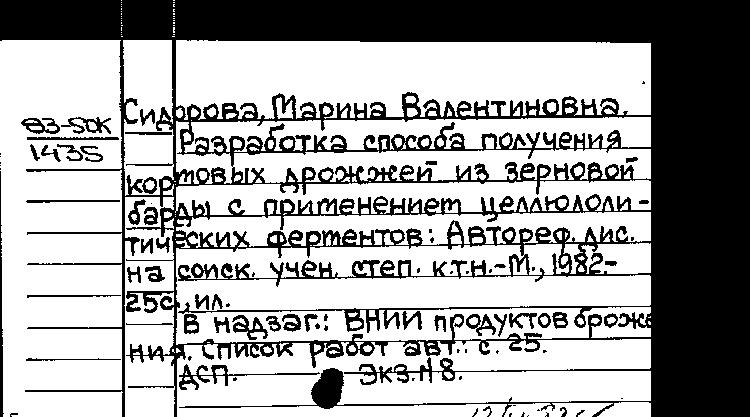 Сидорова, Марина Валентиновна.
83-5ДК
1435
Разработка способа получения
кормовых дрожжей из зерновой
барды с применением целлюлоли-
тических ферментов: Автореф. дис.
на соиск. учен. степ. к.т.н.-М., 1982.-
25с., ил.
В надзаг.: ВНИИ продуктов броже
ния. Список работ авт.: с. 25.
ДСП. Экз. № 8.